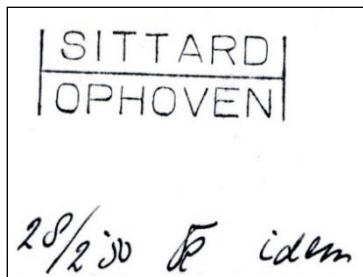 SITTARD
OPHOVEN
28/2 '50 idem